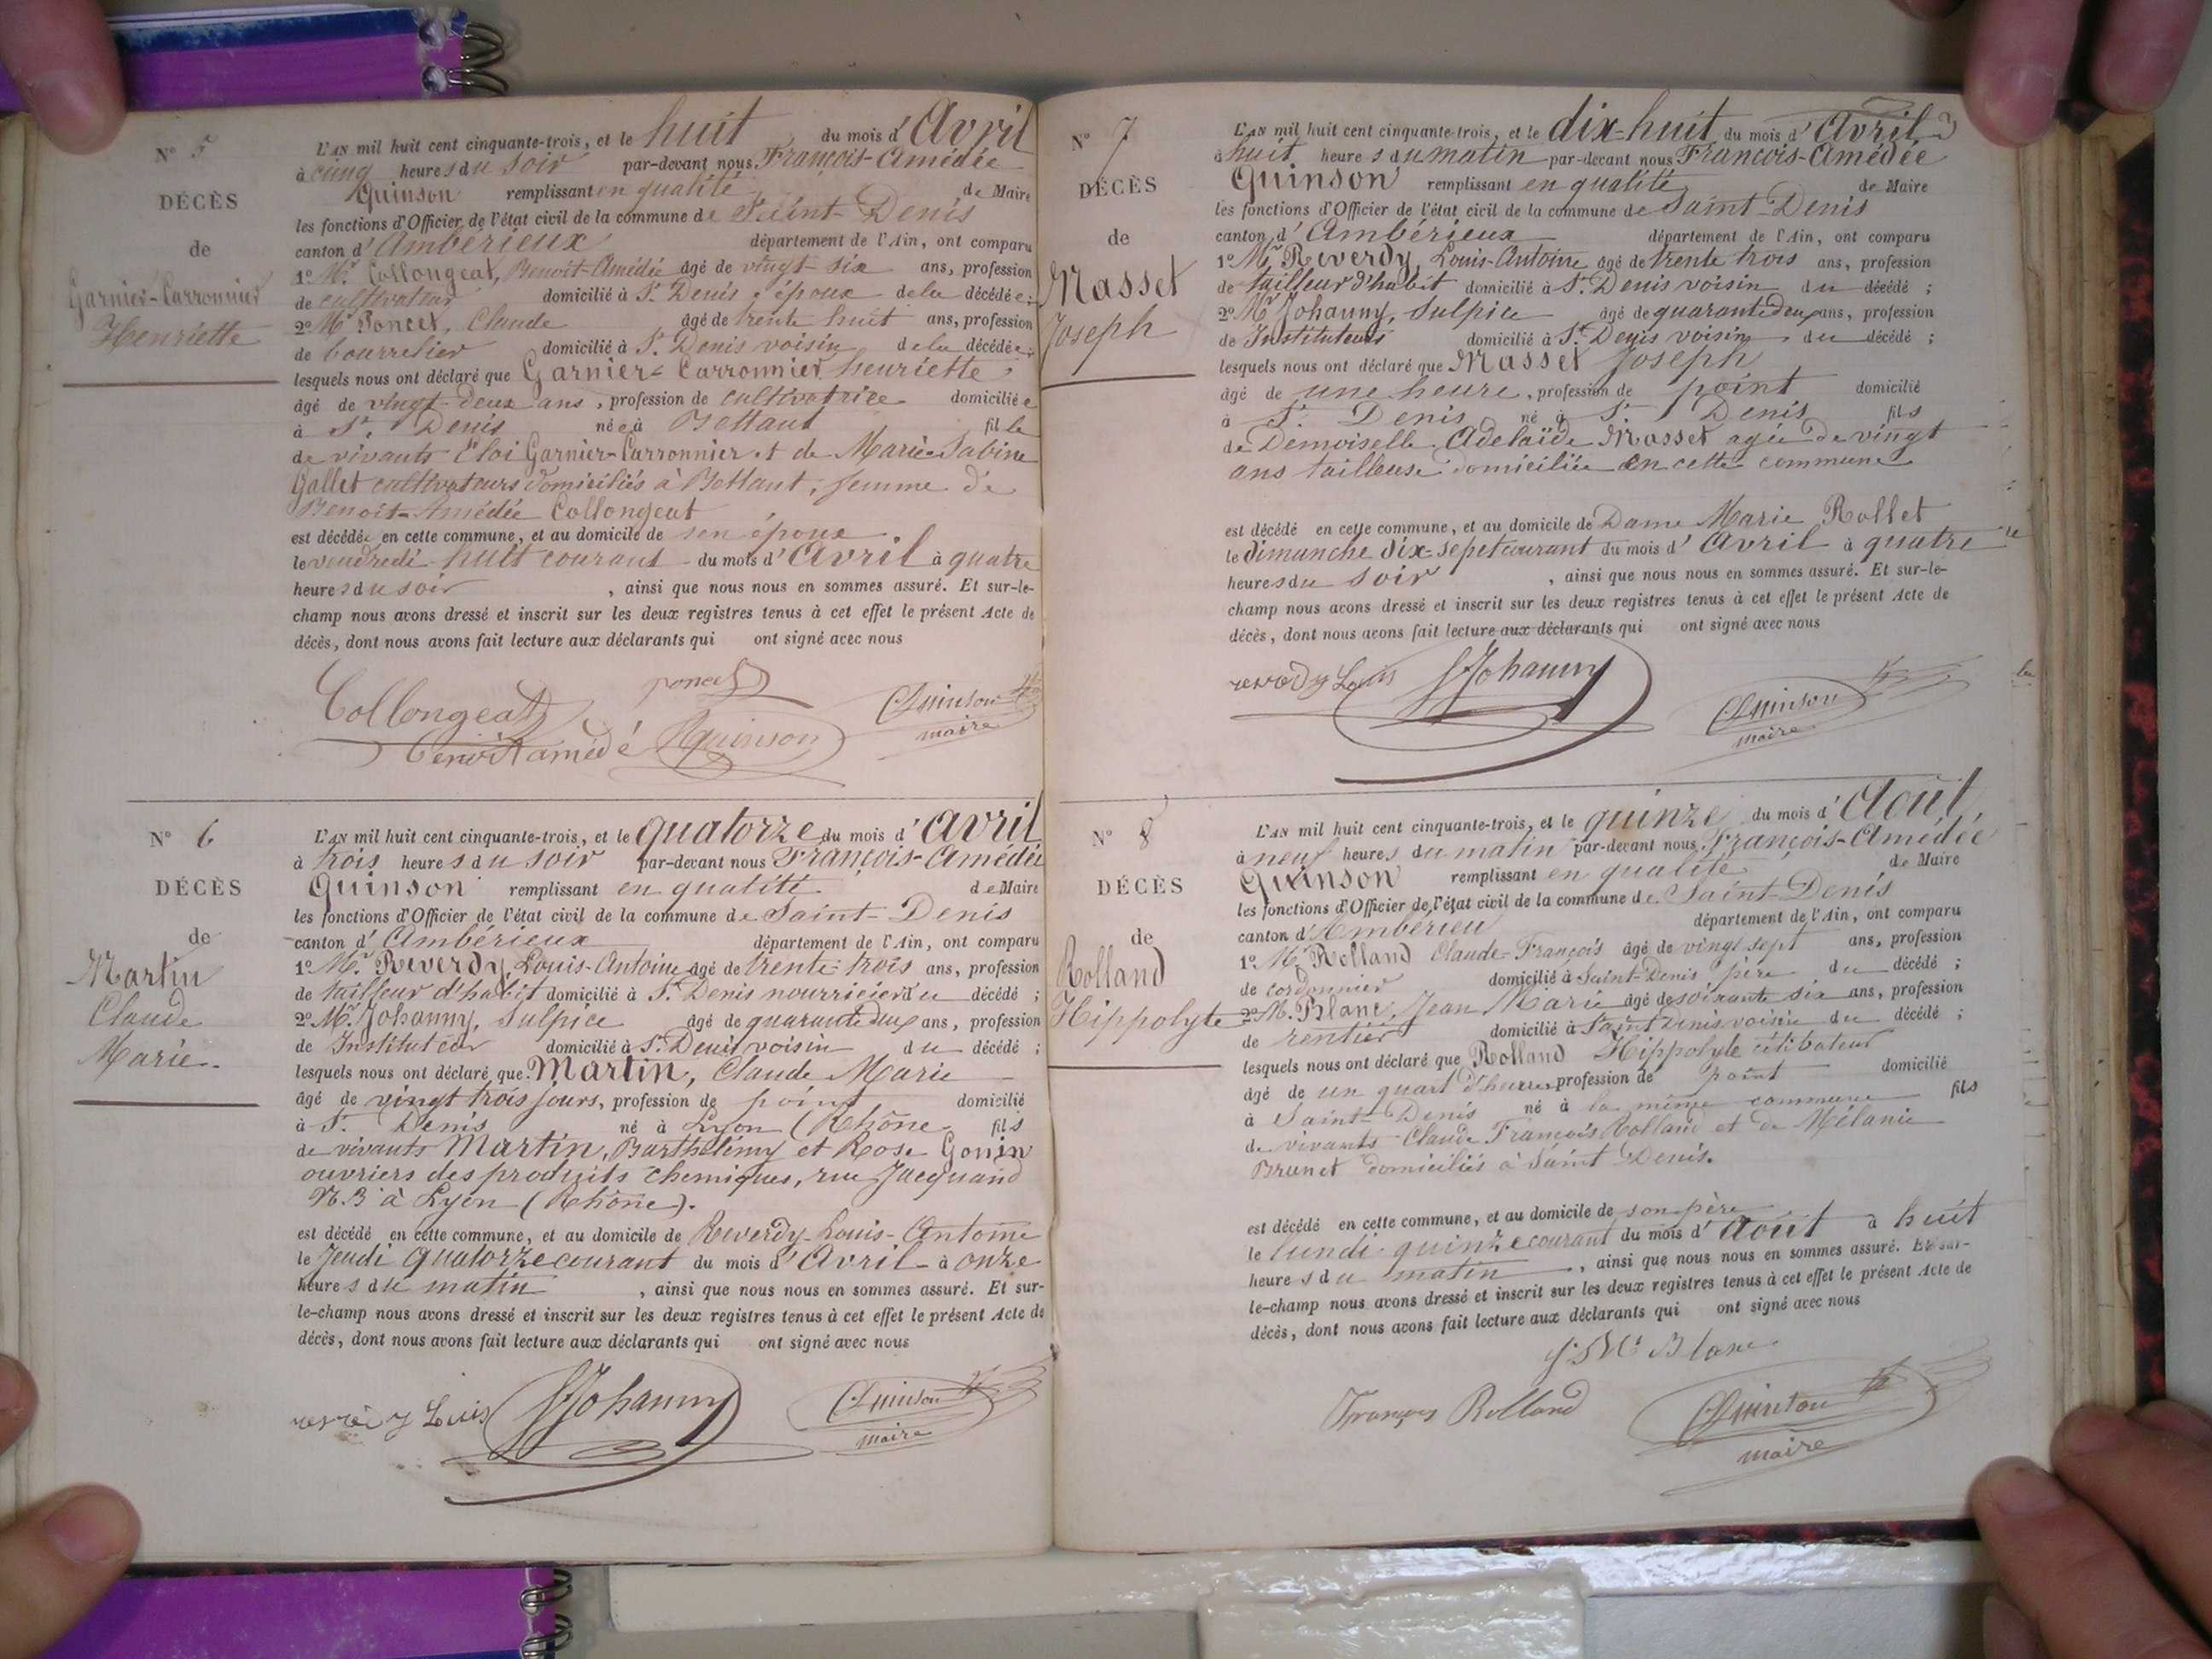 N° 5
DÉCÈS
de
Garnier-Carronnier
Henriette
L'AN mil huit cent cinquante-trois, et le huit du mois d'Avril
à cinq heures du soir par-devant nous François-Amédée
Quinson remplissant en qualité de Maire
les fonctions d'Officier de l'état civil de la commune de Saint-Denis
canton d'Ambérieux département de l'Ain, ont comparu
1° Mr. Collongeat, Benoit-Amédée âgé de vingt-six ans, profession
de cultivateur domicilié à St. Denis époux de la décédée;
2° Mr Poncet, Claude âgé de trente huit ans, profession
de bourrelier domicilié à St. Denis voisin de la décédée;
lesquels nous ont déclaré que Garnier-Carronnier henriette
âgé de vingt-deux ans, profession de cultivatrice domiciliée
à St. Denis née à Bettant fille
de vivants Eloi Garnier-Carronnier et de Marie Sabine
Gallet cultivateurs domiciliés à Bettant, femme de
Benoit-Amédée Collongeat
est décédée en cette commune, et au domicile de son époux
le vendredi huit courant du mois d'Avril à quatre
heures du soir, ainsi que nous nous en sommes assuré. Et sur-le-
champ nous avons dressé et inscrit sur les deux registres tenus à cet effet le présent Acte de
décès, dont nous avons fait lecture aux déclarants qui ont signé avec nous
Collongeat poncet Quinson
Benoit amédé Quinson maire
N° 6
DÉCÈS
de
Martin
Claude
Marie.
L'AN mil huit cent cinquante-trois, et le quatorze du mois d'avril
à trois heures du soir par-devant nous François-Amédée
Quinson remplissant en qualité de Maire
les fonctions d'Officier de l'état civil de la commune de Saint-Denis
canton d'Ambérieux département de l'Ain, ont comparu
1° Mr. Reverdy, Louis-Antoine âgé de trente-trois ans, profession
de tailleur d'habit domicilié à St. Denis nourricier du décédé;
2° Mr. Johanny, Sulpice âgé de quarante deux ans, profession
de Instituteur domicilié à St. Denis voisin du décédé;
lesquels nous ont déclaré que Martin, Claude Marie
âgé de vingt trois jours, profession de point domicilié
à St. Denis né à Lyon (Rhône fils
de vivants Martin, Barthélemy et Rose Gonin
ouvriers des produits chemiques, rue Jacquand
N. 3 à Lyon (Rhône).
est décédé en cette commune, et au domicile de Reverdy-Louis-Antoine
le Jeudi quatorze courant du mois d'Avril à onze
heures du matin, ainsi que nous nous en sommes assuré. Et sur-
le-champ nous avons dressé et inscrit sur les deux registres tenus à cet effet le présent Acte de
décès, dont nous avons fait lecture aux déclarants qui ont signé avec nous
Louis SJohanny Quinson
maire
N° 7
DÉCÈS
de
Masset
Joseph
L'AN mil huit cent cinquante-trois, et le dix-huit du mois d'Avril
à huit heures du matin par-devant nous François-Amédée
Quinson remplissant en qualité de Maire
les fonctions d'Officier de l'état civil de la commune de Saint-Denis
canton d'Ambérieux département de l'Ain, ont comparu
1° Mr Reverdy, Louis-Antoine âgé de trente trois ans, profession
de tailleur d'habit domicilié à St. Denis voisin du décédé;
2° Mr Johanny, Sulpice âgé de quarante deux ans, profession
de Instituteur domicilié à St. Denis voisin du décédé;
lesquels nous ont déclaré que Masset Joseph
âgé de une heure, profession de point domicilié
à St. Denis né à St. Denis fils
de Demoiselle Adelaïde Masset agée de vingt
ans tailleuse domiciliée en cette commune
est décédé en cette commune, et au domicile de Dame Marie Rollet
le dimanche dix-sepet courant du mois d'Avril à quatre
heures du soir, ainsi que nous nous en sommes assuré. Et sur-le-
champ nous avons dressé et inscrit sur les deux registres tenus à cet effet le présent Acte de
décès, dont nous avons fait lecture aux déclarants qui ont signé avec nous
SJohanny Quinson
maire
N° 8
DÉCÈS
de
Rolland
Hippolyte
L'AN mil huit cent cinquante-trois, et le quinze du mois d'Aout
à neuf heures du matin par-devant nous François-Amédée
Quinson remplissant en qualité de Maire
les fonctions d'Officier de l'état civil de la commune de Saint-Denis
canton d'Ambérieu département de l'Ain, ont comparu
1° Mr. Rolland Claude-François âgé de vingt sept ans, profession
de cordonnier domicilié à Saint-Denis père du décédé;
2° M. Blanc, Jean Marie âgé de soixante six ans, profession
de rentier domicilié à Saint Denis voisin du décédé;
lesquels nous ont déclaré que Rolland Hippolyte célibateur
âgé de un quart d'heure, profession de point domicilié
à Saint-Denis né à la même commune fils
de vivants Claude François Rolland et de Mélanie
Brunet domiciliés à Saint Denis.
est décédé en cette commune, et au domicile de son père
le lundi quinze courant du mois d'Aout à huit
heures du matin, ainsi que nous nous en sommes assuré. Et sur-
le-champ nous avons dressé et inscrit sur les deux registres tenus à cet effet le présent Acte de
décès, dont nous avons fait lecture aux déclarants qui ont signé avec nous
Blanc
François Rolland Quinson
maire